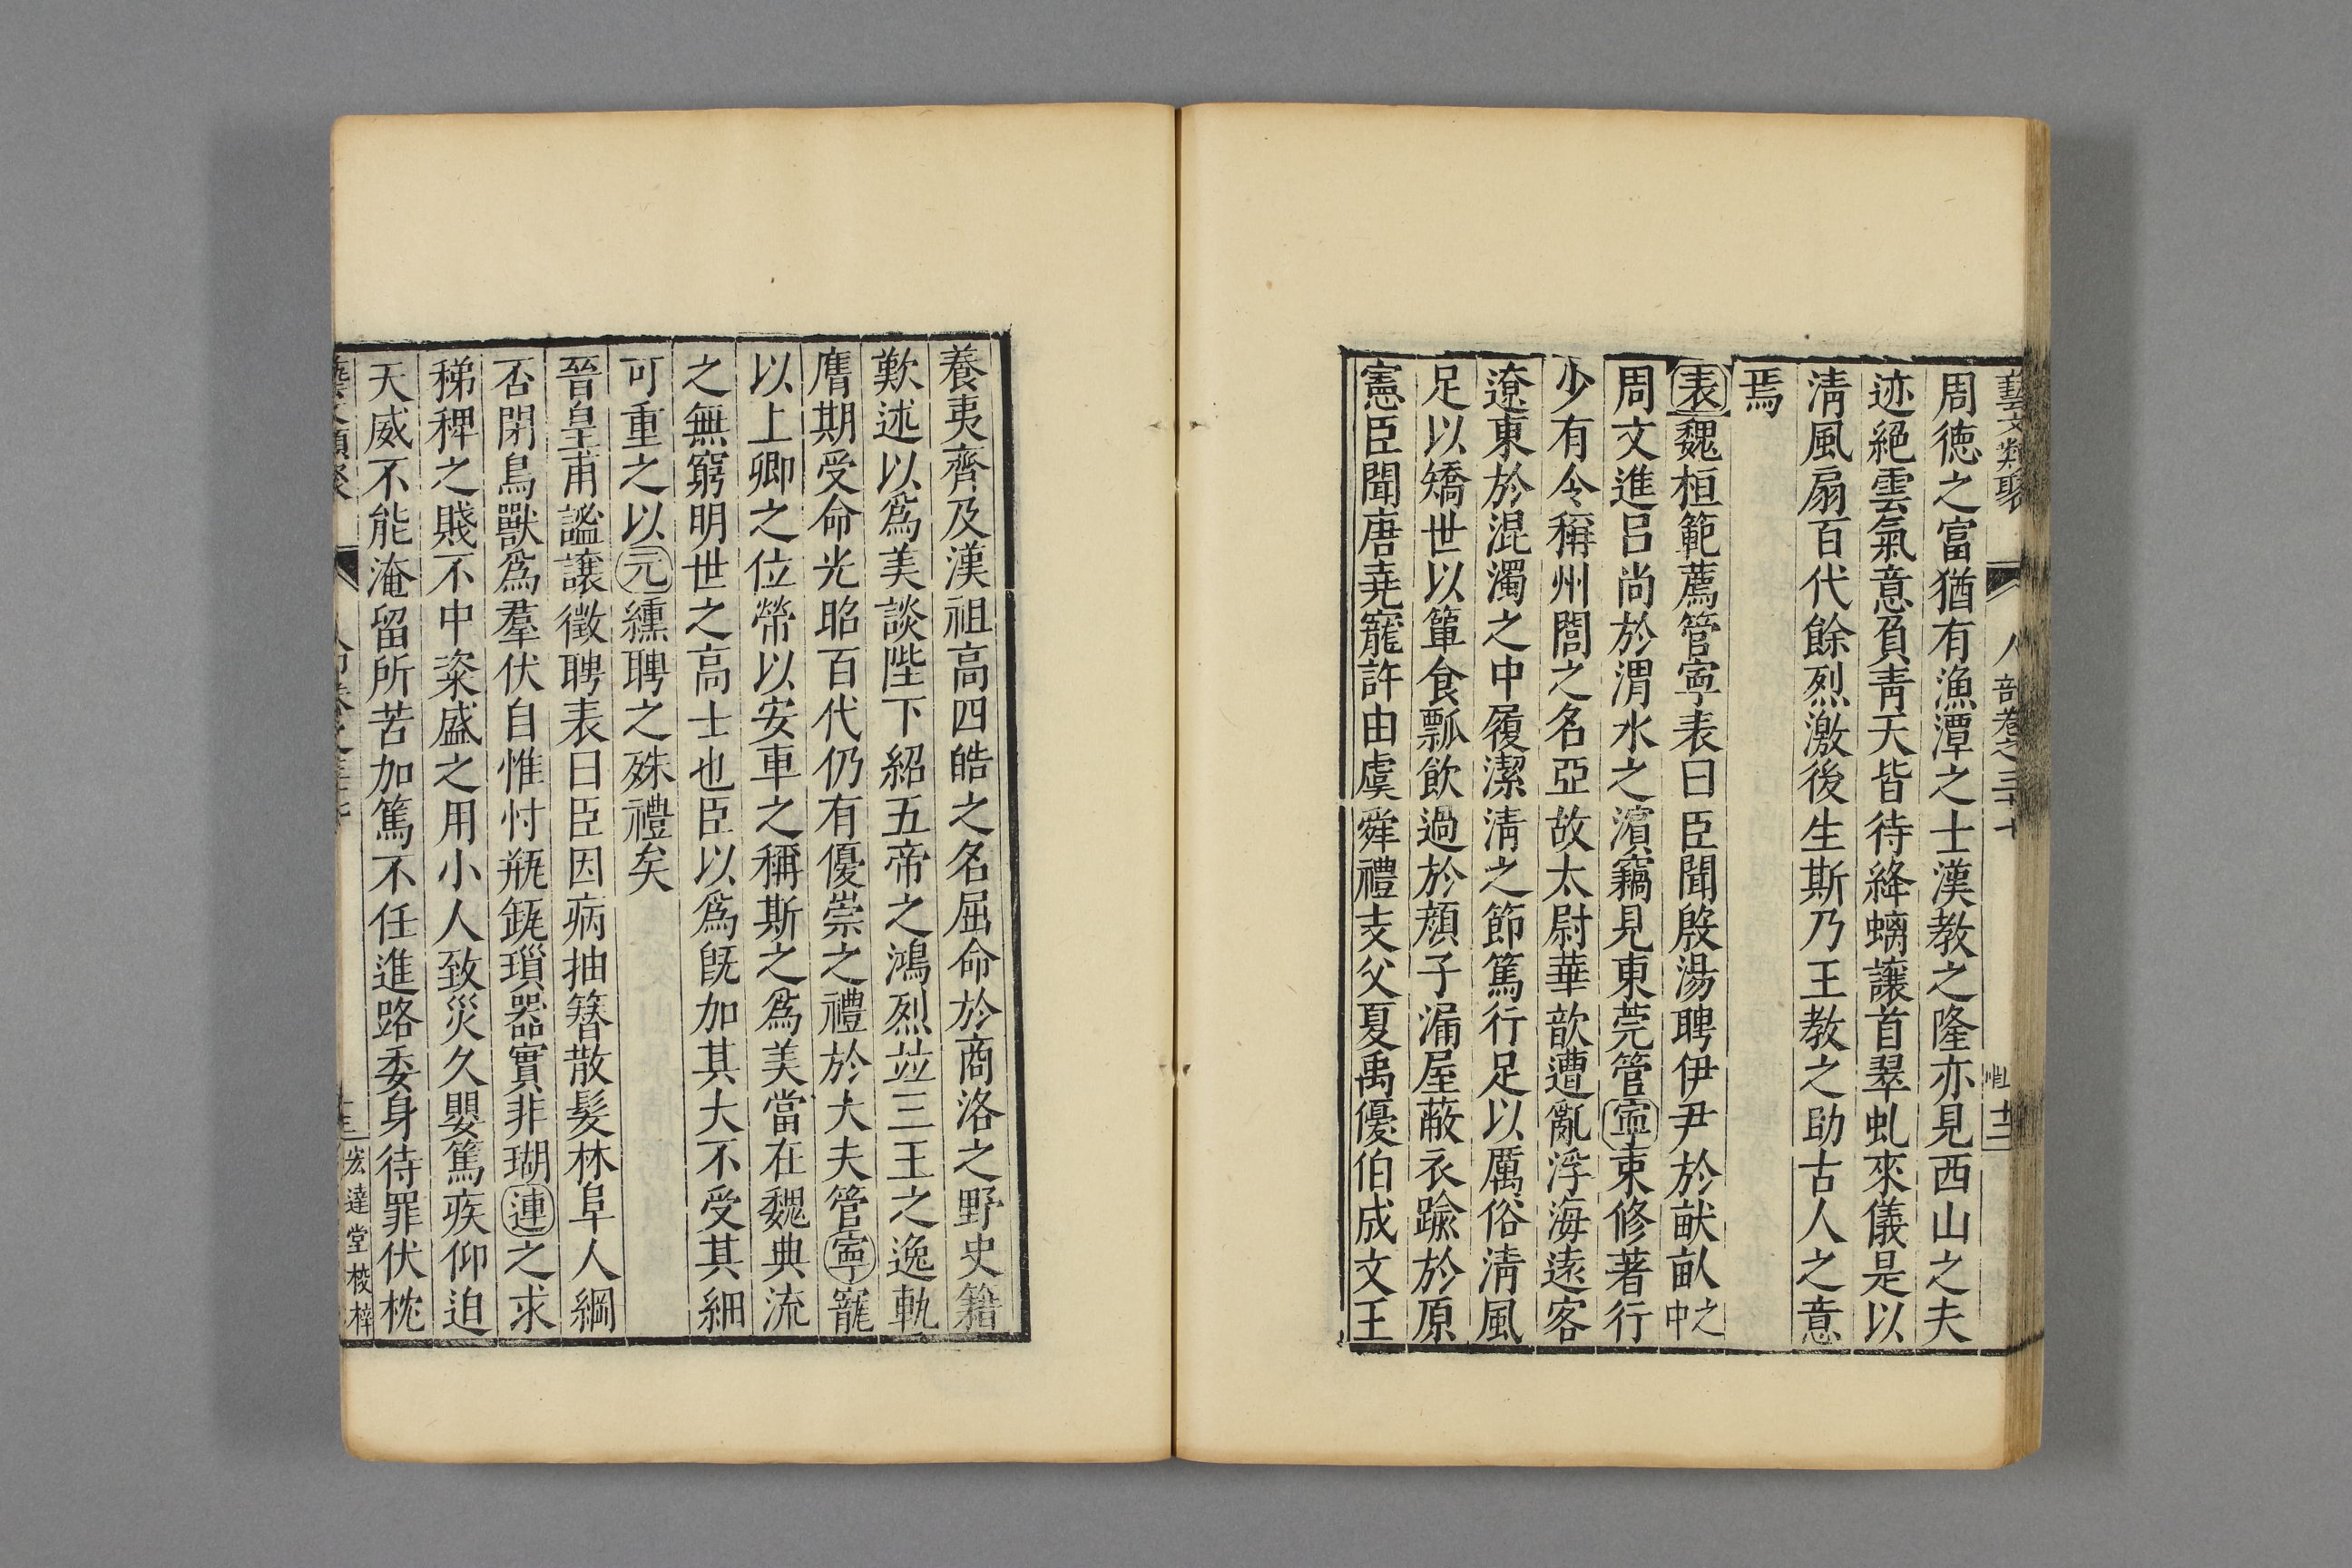 藝文類聚 人部卷之三十七
周德之富猶有漁潭之士漢教之隆亦見西山之夫
迹絕雲氣意負青天皆待絳螭讓首翠虬來儀是以
淸風扇百代餘烈激後生斯乃王教之助古人之意
焉
表魏桓範薦管寧表曰臣聞殷湯聘伊尹於畎畝之中
周文進呂尚於渭水之濱竊見東莞管寧束修著行
少有令稱州閭之名亞故太尉華歆遭亂浮海遠客
遼東於混濁之中履潔淸之節篤行足以厲俗淸風
足以矯世以簞食瓢飲過於顏子漏屋蔽衣踰於原
憲臣聞唐堯寵許由虞舜禮支父夏禹優伯成文王
養夷齊及漢祖高四皓之名屈命於商洛之野史籍
歎述以爲美談陛下紹五帝之鴻烈竝三王之逸軌
膺期受命光昭百代仍有優崇之禮於大夫管寧寵
以上卿之位榮以安車之稱斯之爲美當在魏典流
之無窮明世之高士也臣以爲旣加其大不受其細
可重之以元纁聘之殊禮矣
晉皇甫謐讓徵聘表曰臣因病抽簪散髮林阜人綱
否閉鳥獸爲羣伏自惟忖瓶瓻瑣器實非瑚連之求
稊稗之賤不中粢盛之用小人致災久嬰篤疾仰迫
天威不能淹留所苦加篤不任進路委身待罪伏枕
宏達堂校梓